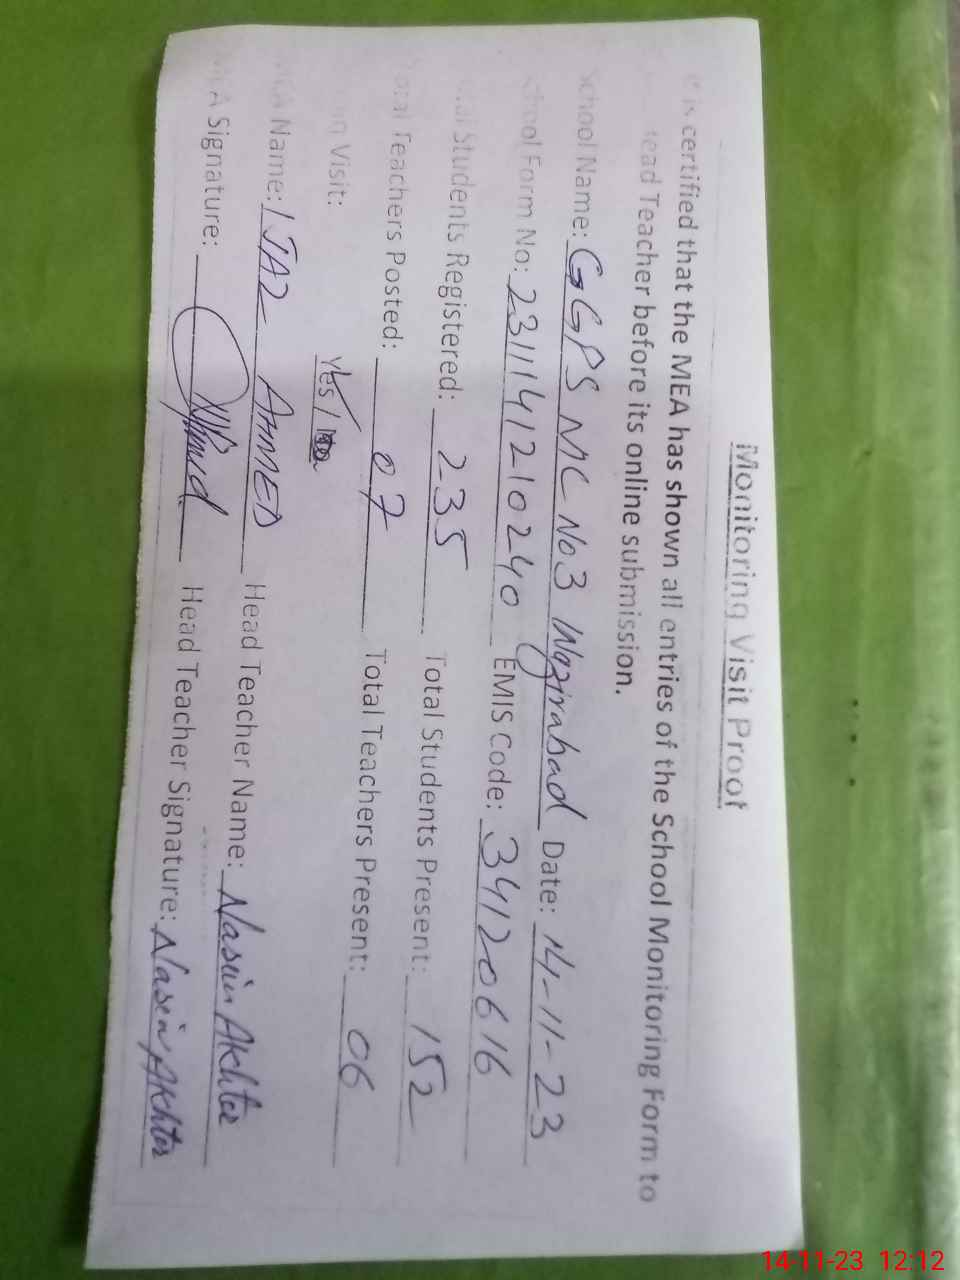 Monitoring Visit Proof
It is certified that the MEA has shown all entries of the School Monitoring Form to
Head Teacher before its online submission.
School Name: GGPS MC No3 Wazirabad Date: 14-11-23
School Form No: 2311141210240 EMIS Code: 34120616
Total Students Registered: 235 Total Students Present: 152
Total Teachers Posted: 07 Total Teachers Present: 06
Visit: Yes /
MEA Name: IJAZ AHMED Head Teacher Name: Nasim Akhter
MEA Signature: Head Teacher Signature: Nasim Akhter
14-11-23 12:12